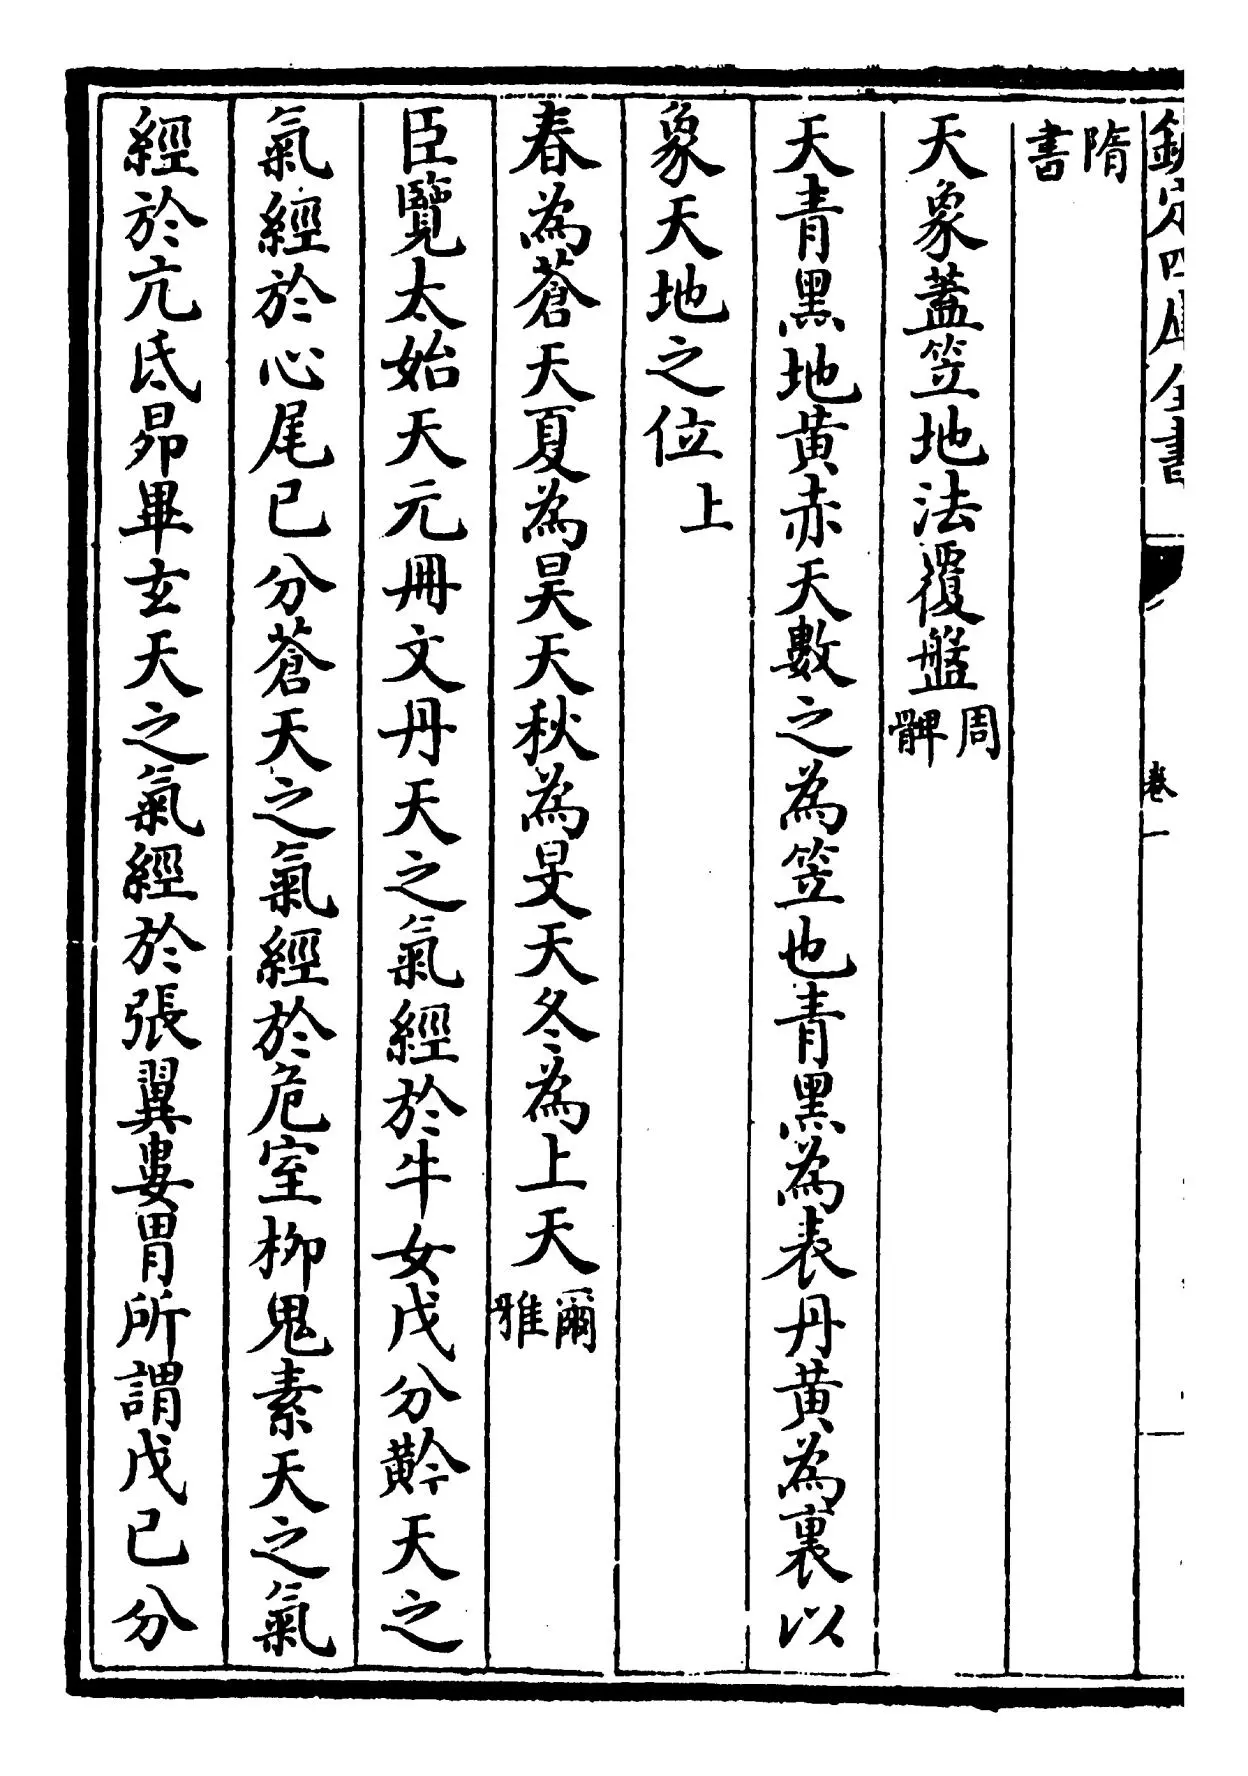 欽定四庫全書
卷一
隋書
天象蓋笠地法覆盤周髀
天青黑地黃赤天數之為笠也青黑為表丹黃為裏以
象天地之位上
春為蒼天夏為昊天秋為旻天冬為上天爾雅
臣覽太始天元冊文丹天之氣經於牛女戊分黅天之
氣經於心尾已分蒼天之氣經於危室柳鬼素天之氣
經於亢氐昴畢玄天之氣經於張翼婁胃所謂戊已分